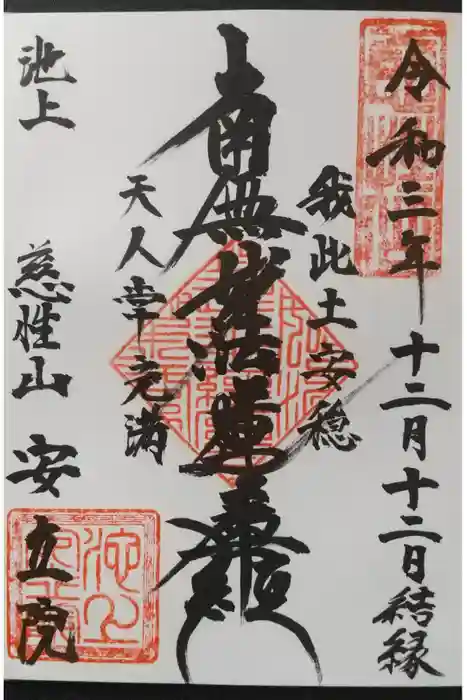 令和三年十二月十二日結縁
我此土安穏
南無妙法蓮華経
天人常充満
池上 慈性山 安立院